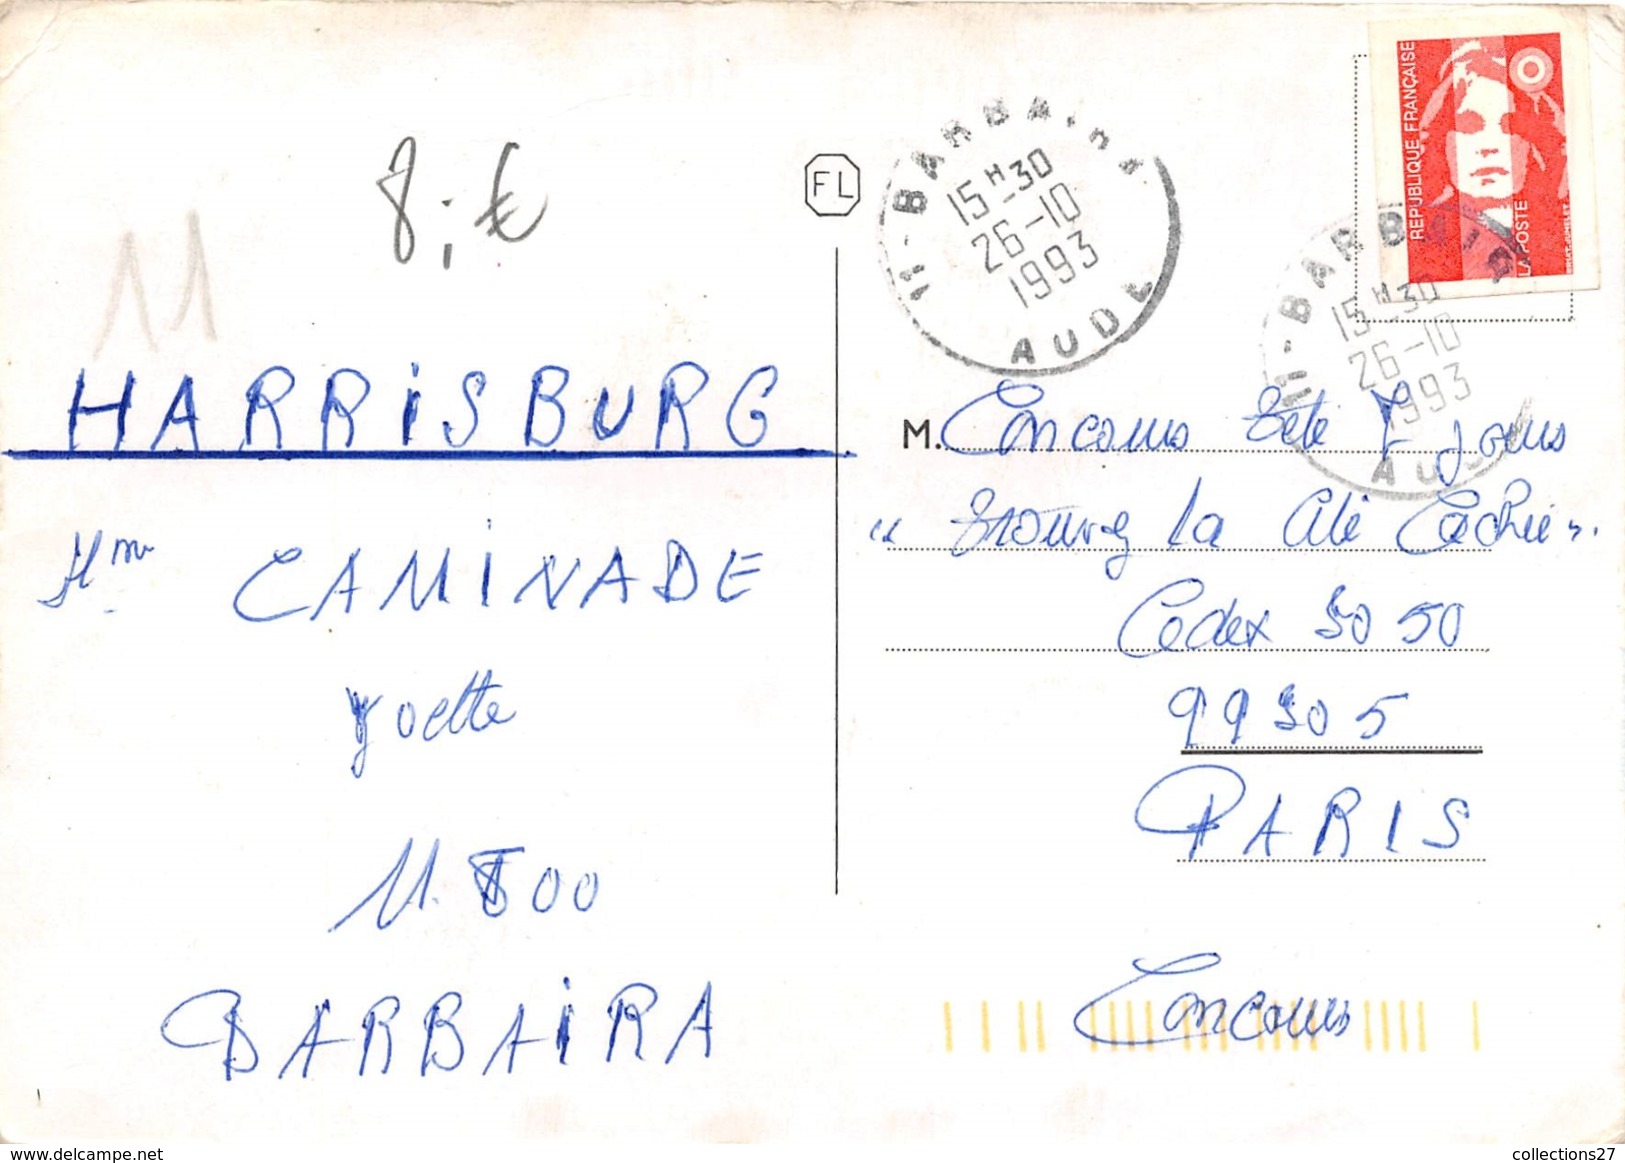 8,- €
11
HARRISBURG
Mme CAMINADE
Yvette
11.800
BARBAIRA
FL
11-BARBAIRA
15H30
26-10
1993
AUDE
REPUBLIQUE FRANÇAISE
LA POSTE
11-BARBAIRA
15H30
26-10
1993
AUDE
M. Concours Télé 7 Jours
"Trouvez la Clé Cachée".
Cedex 3050
99305
PARIS
Concours
collections27
delcampe.net